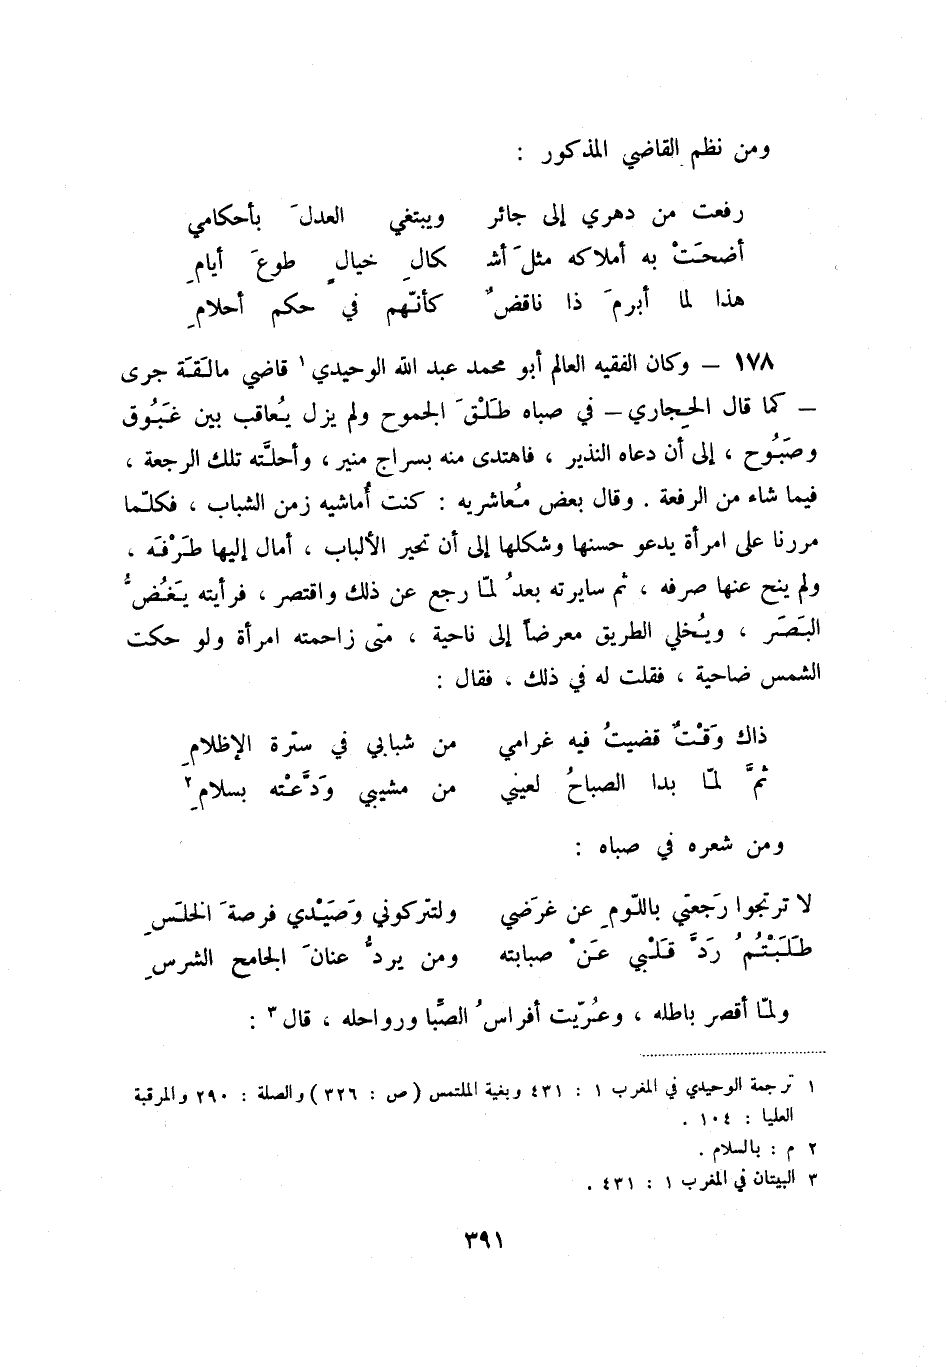 ومن نظم القاضي المذكور :
رفعت من دهري إلى جائر ويبتغي العدلَ بأحكامي
أضحتْ به أملاكه مثلَ أشـ كالِ خيالٍ طوعَ أيامِ
هذا لما أبرمَ ذا ناقضٌ كأنّهم في حكم أحلامِ
١٧٨ – وكان الفقيه العالم أبو محمد عبد الله الوحيدي ١ قاضي مالَقَة جرى
– كما قال الحِجاري – في صباه طَلْقَ الجموح ولم يزل يُعاقب بين غَبُوق
وصَبُوح ، إلى أن دعاه النذير ، فاهتدى منه بسراج منير ، وأحلَّته تلك الرجعة ،
فيما شاء من الرفعة . وقال بعض مُعاشريه : كنت أُماشيه زمن الشباب ، فكلّما
مررنا على امرأة يدعو حسنها وشكلها إلى أن تحير الألباب ، أمال إليها طَرْفَه ،
ولم ينح عنها صرفه ، ثم سايرته بعدُ لمّا رجع عن ذلك واقتصر ، فرأيته يَغُضُّ
البَصَر ، ويُخلي الطريق معرضاً إلى ناحية ، متى زاحمته امرأة ولو حكت
الشمس ضاحية ، فقلت له في ذلك ، فقال :
ذاك وَقْتٌ قضيتُ فيه غرامي من شبابي في سترة الإظلامِ
ثمَّ لمّا بدا الصباحُ لعيني من مشيبي وَدَّعْته بسلامِ ٢
ومن شعره في صباه :
لا ترتجوا رَجعتي باللّومِ عن غرَضي ولتتركوني وَصَيْدي فرصةَ الخلَسِ
طَلَبْتُمُ رَدَّ قَلْبي عَنْ صبابته ومن يردُّ عنانَ الجامح الشرسِ
ولمّا أقصر باطله ، وعُرّيت أفراسُ الصِّبا ورواحله ، قال ٣ :
١ ترجمة الوحيدي في المغرب ١ : ٤٣١ وبغية الملتمس ( ص : ٣٢٦ ) والصلة : ٢٩٠ والمرقبة
العليا : ١٠٤ .
٢ م : بالسلام .
٣ البيتان في المغرب ١ : ٤٣١ .
٣٩١